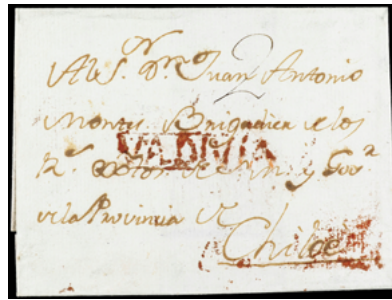 Al S.r D.n Juan Antonio
2
Montes Brigadier de los
VALDIVIA
R.s y Gov.r
de la Provincia de
Chiloe